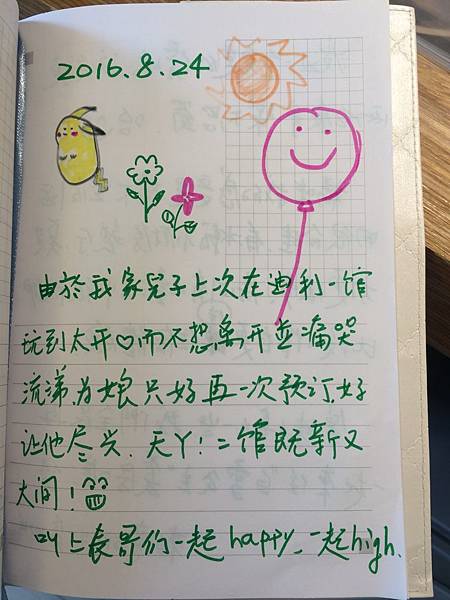 2016.8.24
由於我家兒子上次在迪利一馆
玩到太开♡而不想离开並痛哭
流涕为娘只好再一次预订好
让他尽兴.天丫!二馆既新又
大间!
叫上表哥们一起happy,一起high.